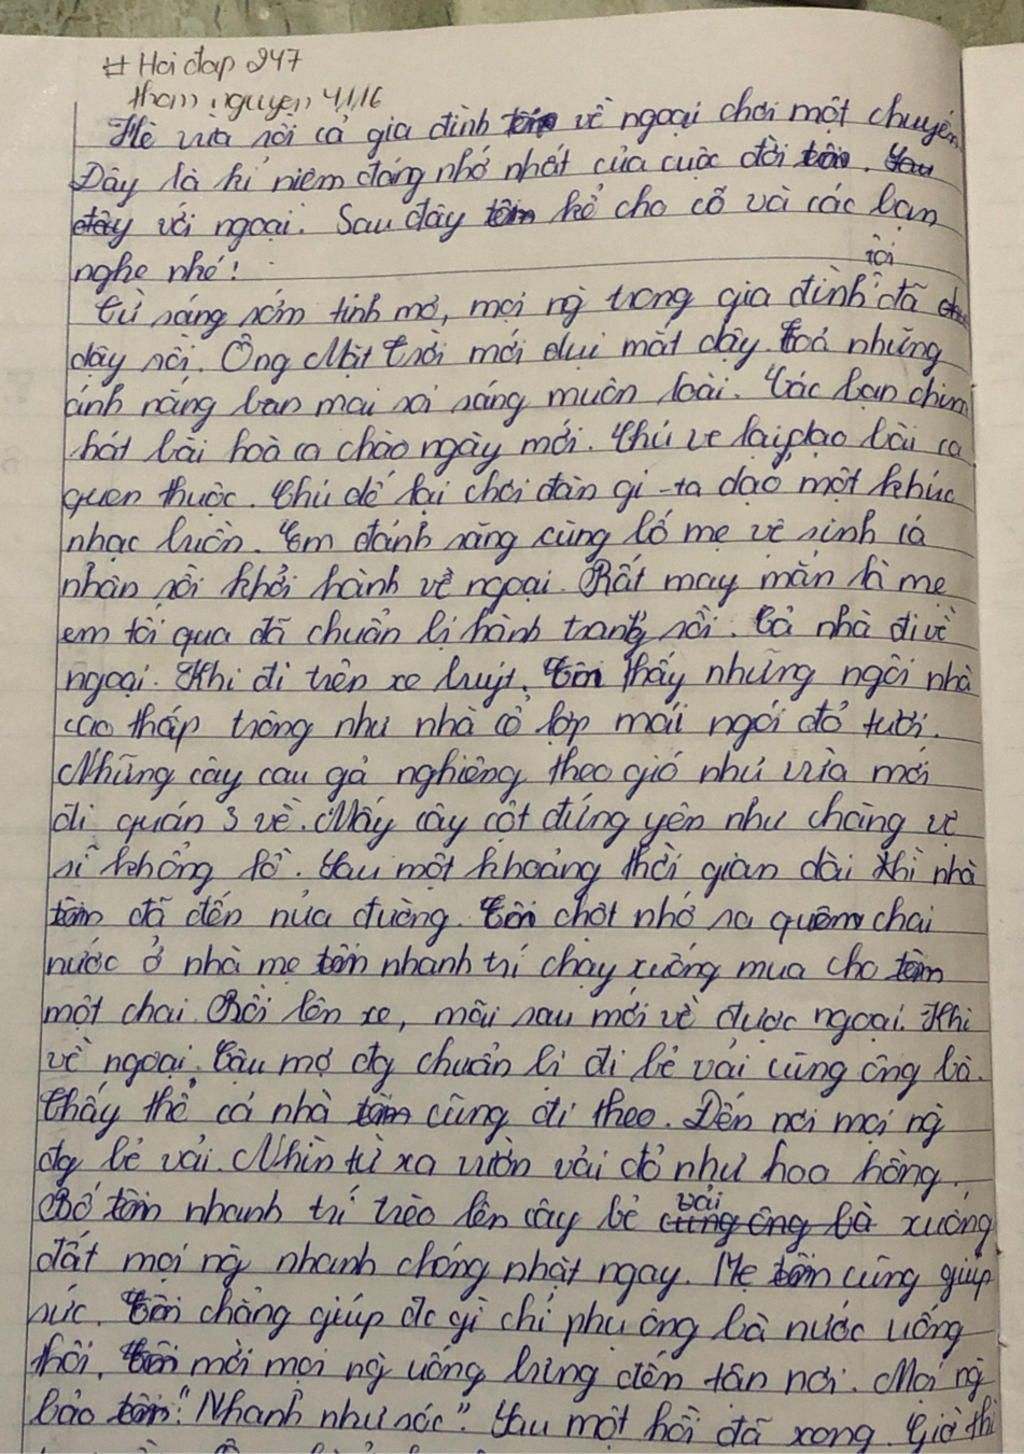 # Hoidap 247
tham nguyen 41,16
Hè vừa rồi cả gia đình tôi về ngoại chơi một chuyến.
Đây là kỉ niệm đáng nhớ nhất của cuộc đời tôi. Sau
đây với ngoại. Sau đây tôi kể cho cô và các bạn
nghe nhé!
tôi
Từ sáng sớm tinh mơ, mọi ng̀ trong gia đình đã
dậy rồi. Ông Mặt Trời mới dụi mắt dậy. Toả những
ánh nắng ban mai soi sáng muôn loài. Các bạn chim
hát bài hoà ca chào ngày mới. Chú ve lại dạo bài ca
quen thuộc. Chú dế lại chơi đàn gi-ta dạo một khúc
nhạc buồn. Em đánh răng cùng bố mẹ vệ sinh cá
nhân rồi khởi hành về ngoại. Rất may mắn là mẹ
em tối qua đã chuẩn bị hành trang rồi. Cả nhà đi về
ngoại. Khi đi trên xe buýt. Tôi thấy những ngôi nhà
cao thấp trông như nhà cổ lợp mái ngói đỏ tươi.
Những cây cau gả nghiêng theo gió như vừa mới
đi quán 3 về. Mấy cây cột đứng yên như chàng vệ
sĩ khổng lồ. Sau một khoảng thời gian dài thì nhà
tôi đã đến nửa đường. Tôi chợt nhớ ra quên chai
nước ở nhà mẹ tôi nhanh trí chạy xuống mua cho tôi
một chai. Rồi lên xe, mãi sau mới về được ngoại. Khi
về ngoại, Cậu mợ đg chuẩn bị đi bẻ vải cùng ông bà.
Thấy thế cả nhà tôi cũng đi theo. Đến nơi mọi ng̀
đg bẻ vải. Nhìn từ xa vườn vải đỏ như hoa hồng.
vải
Bố tôi nhanh trí trèo lên cây bẻ cùng ông bà xuống
đất mọi ng̀ nhanh chóng nhặt ngay. Mẹ tôi cũng giúp
sức. Tôi chẳng giúp đc gì chỉ phụ ông bà nước uống
thôi. Tôi mời mọi ng̀ uống bưng đến tận nơi. Mọi ng̀
bảo tôi: "Nhanh như sóc". Sau một hồi đã xong. Giờ thì